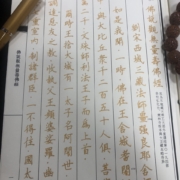 佛說觀無量壽佛經
劉宋西域三藏法師畺良耶舍
如是我聞一時佛在王舍城耆闍
大比丘眾千二百五十人俱菩
二千文殊師利法王子而為上首
爾時王舍大城有一太子名阿闍世
惡友之教收執父王頻婆娑羅幽
重室內制諸群臣一不得往國太